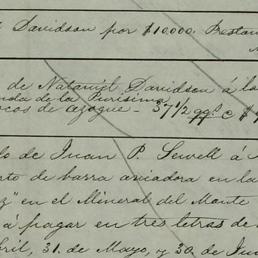 Davidson por $10,000. Restan
de Nataniel Davidson á la
da de la Purísima
cos de azogue - 37½ qq. c $
lo de Juan P. Sewell á
to de barra aviadora en la
" en el Mineral del Monte
á pagar en tres letras de
ril, 31. de Mayo, y 30. de Jun